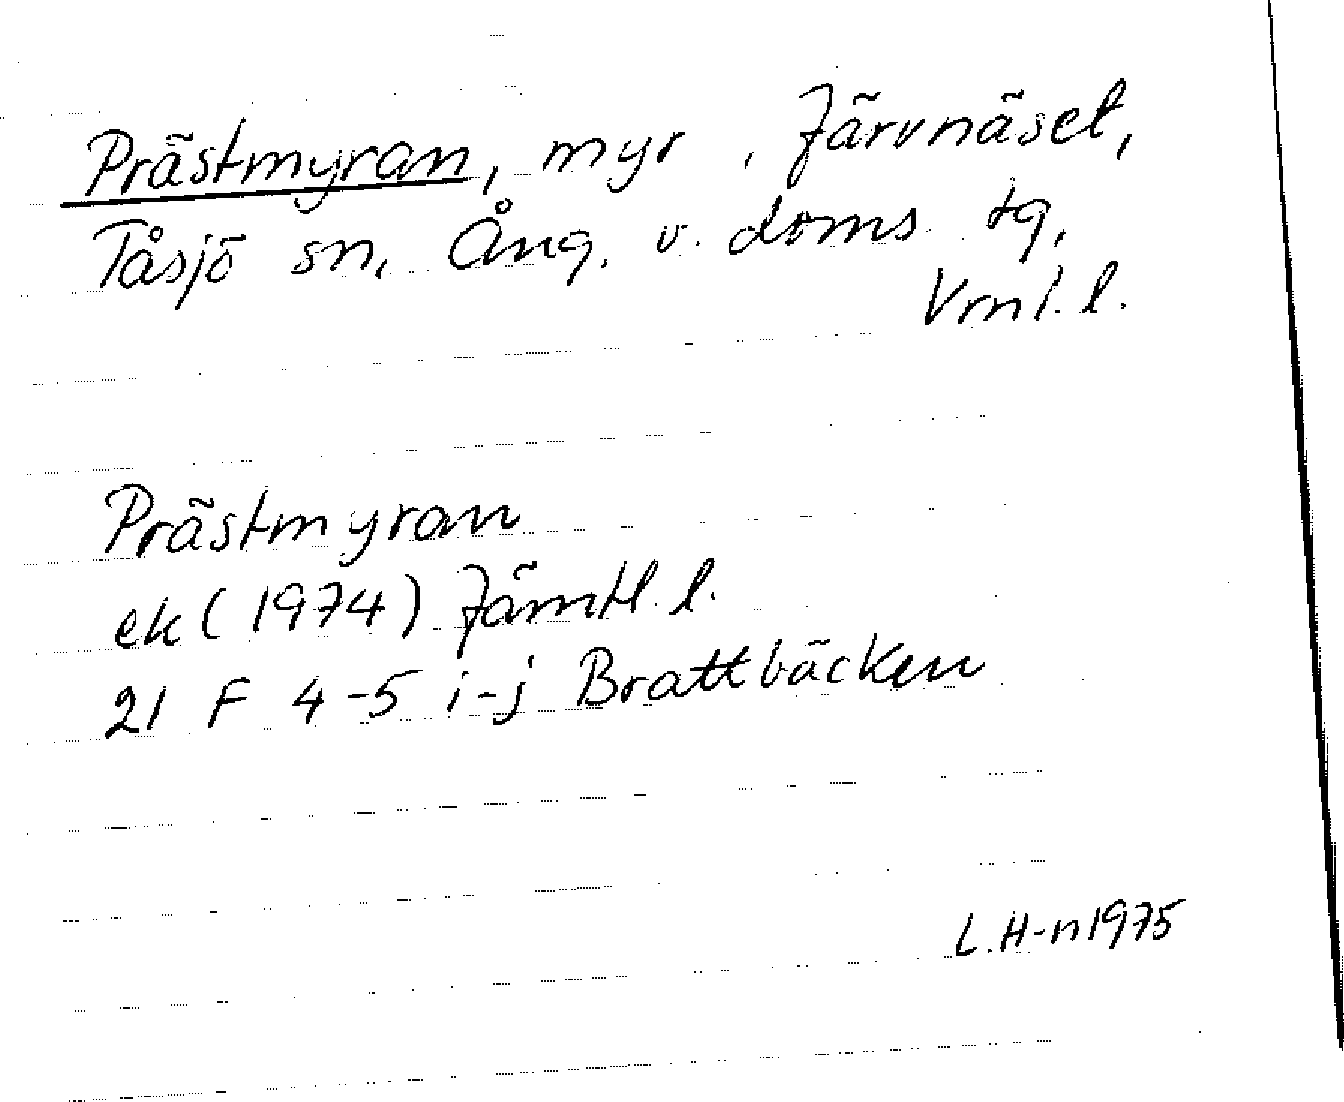 Prästmyran, myr, Järvnäset,
Tåsjö sn, Ång. v. doms tg,
Vrnl. l.
Prästmyran
ek (1974) Jämtl. l.
21 F 4-5 i-j Brattbäcken
L.H-n 1975